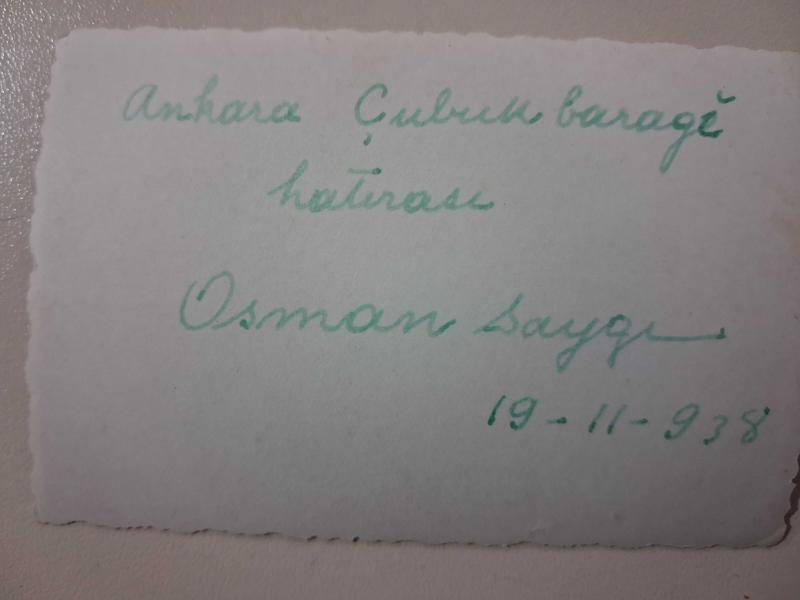 Ankara Çubuk baragĭ
hatırası
Osman Saygı
19-11-938